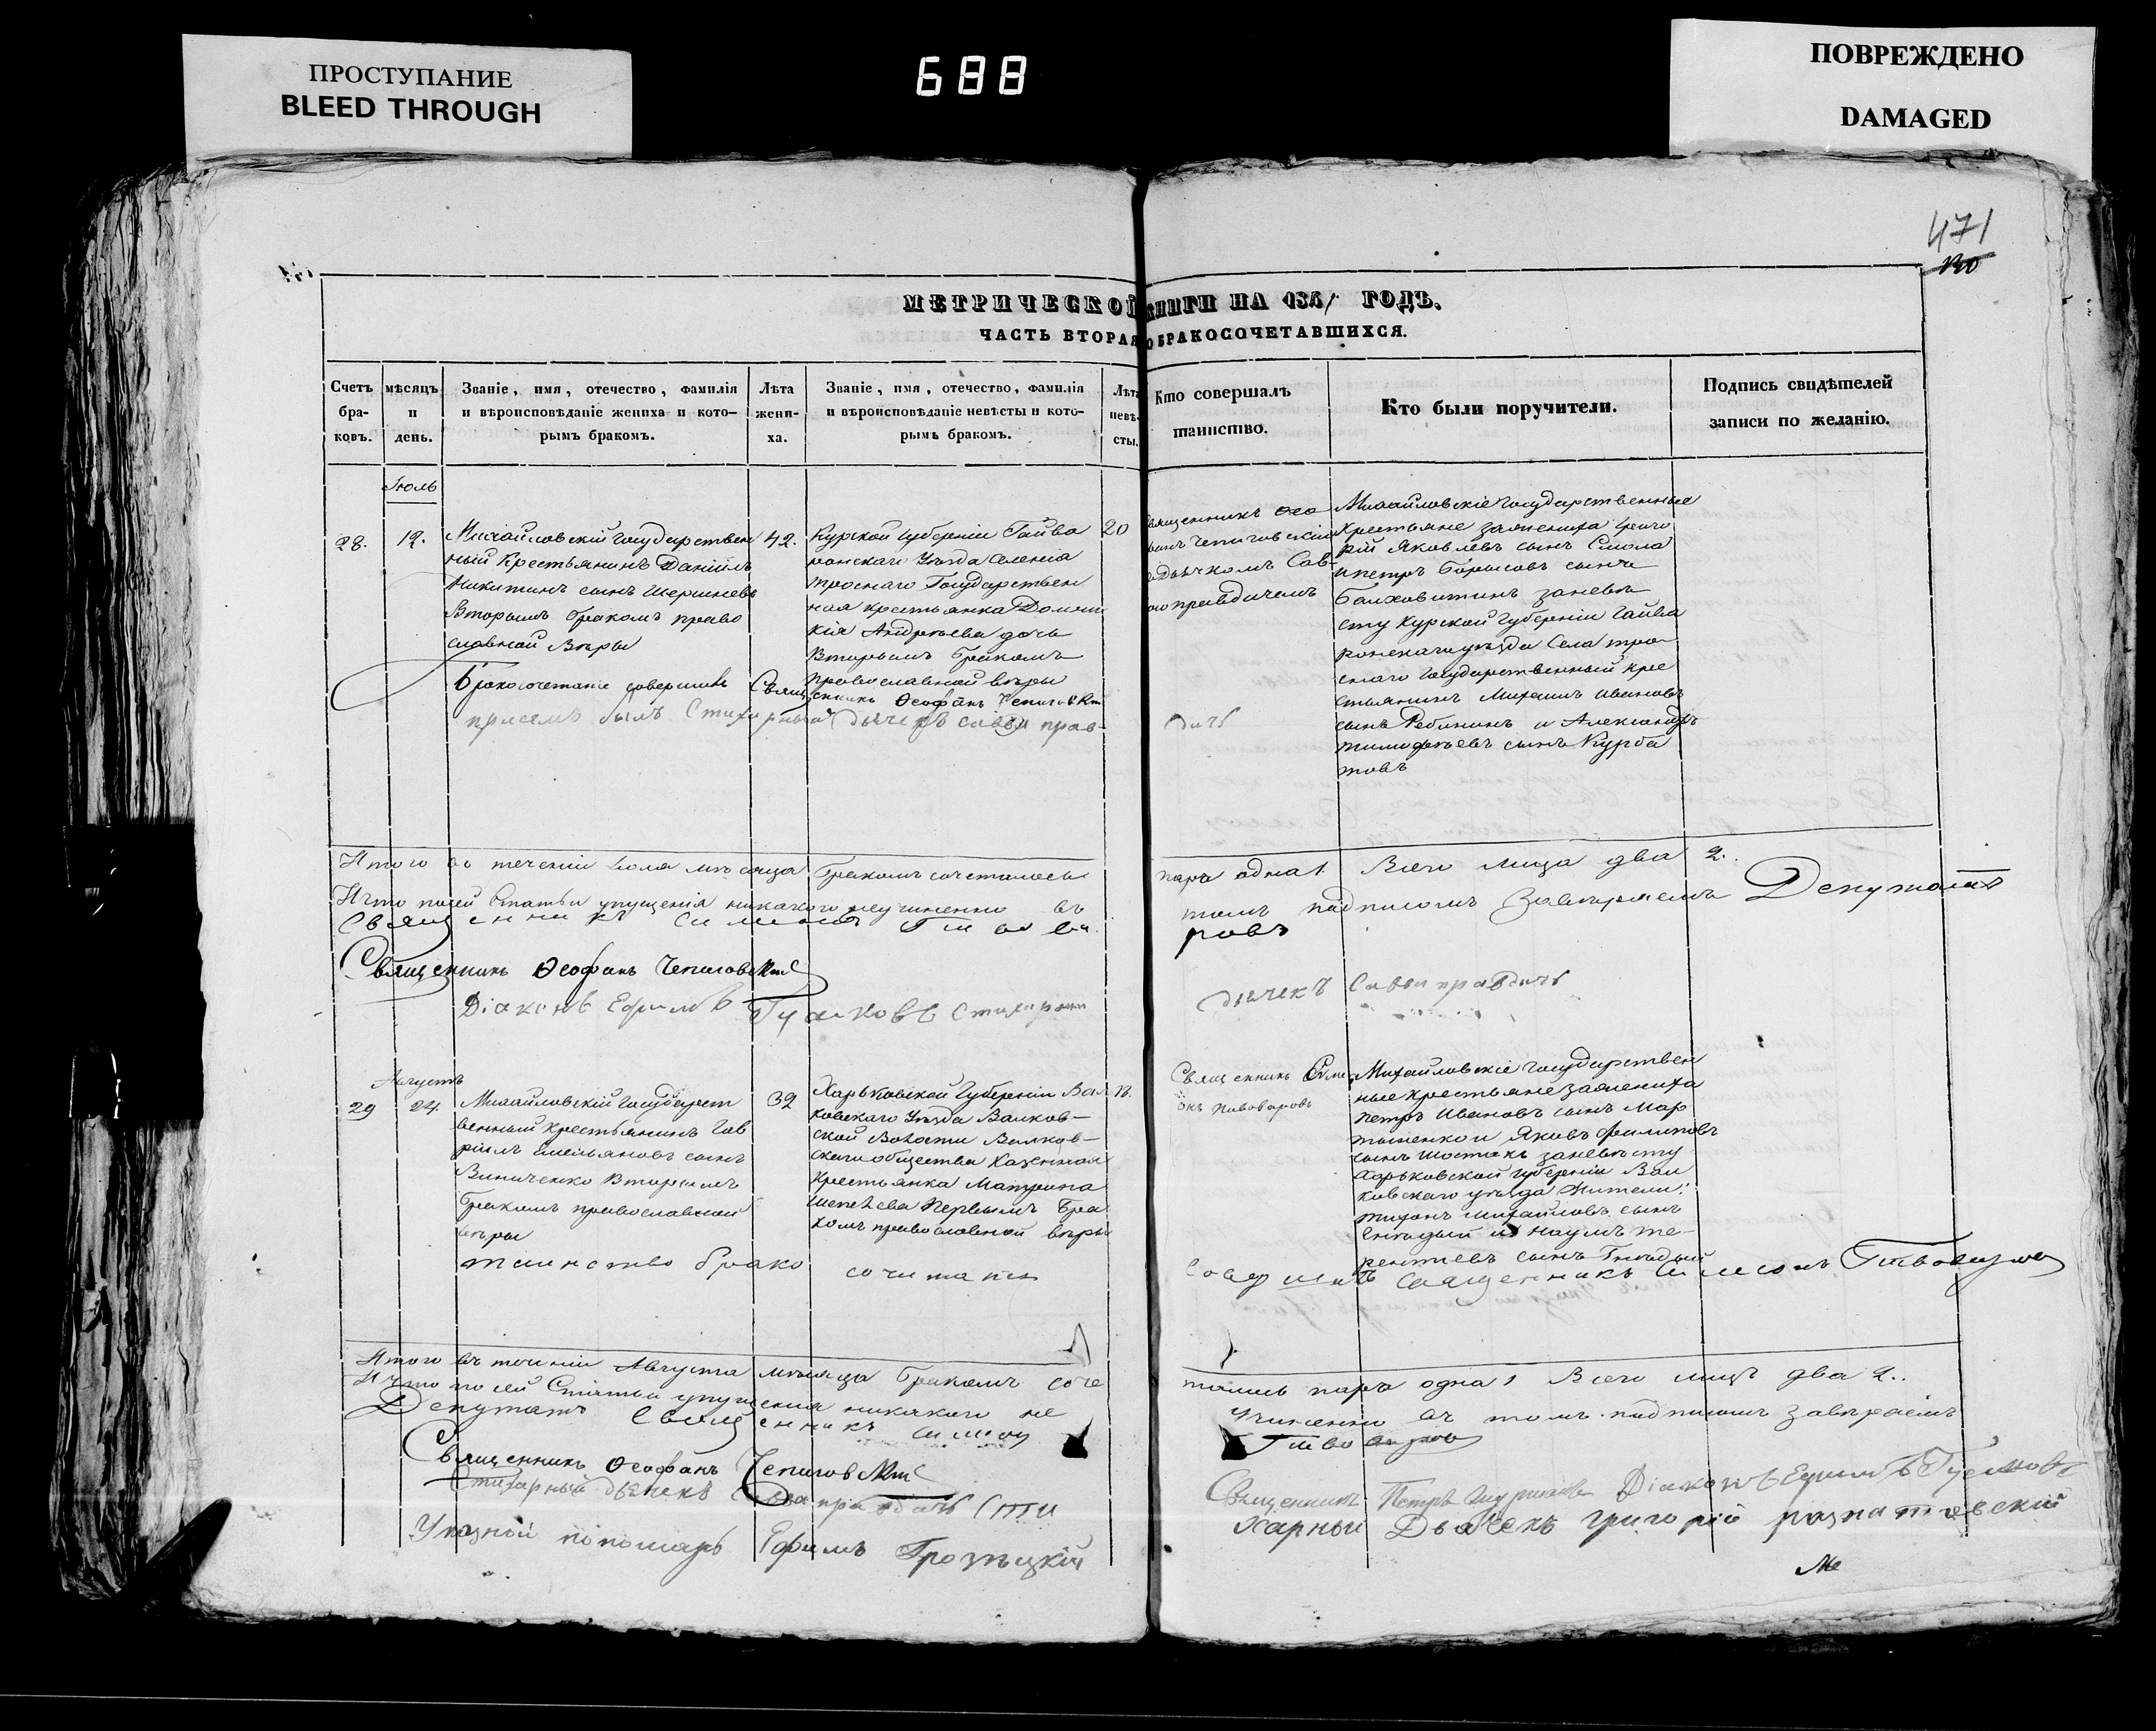 ПРОСТУПАНИЕ
BLEED THROUGH
688
ПОВРЕЖДЕНО
DAMAGED
471
130
МЕТРИЧЕСКОЙ КНИГИ НА 1851 ГОДЪ.
ЧАСТЬ ВТОРАЯ О БРАКОСОЧЕТАВШИХСЯ.
Счетъ бра-
ковъ.
мѣсяцъ
и
день.
Званіе, имя, отечество, фамилія
и вѣроисповѣданіе жениха и кото-
рымъ бракомъ.
Лѣта
жени-
ха.
Званіе, имя, отечество, фамилія
и вѣроисповѣданіе невѣсты и кото-
рымъ бракомъ.
Лѣта
невѣ-
сты.
Кто совершалъ
таинство.
Кто были поручители.
Подпись свидѣтелей
записи по желанію.
Іюль
28.
12.
Михайловскій Государствен
ный Крестьянинъ Даніилъ
Никитинъ сынъ Шершневъ
Вторымъ бракомъ право
славной Вѣры
42.
Курской Губерніи Гайво
ронскаго Уѣзда Селенія
Троснаго Государствен
ная крестьянка Домни
кія Андреева дочь
Вторымъ бракомъ
православной вѣры
20
Священникъ Ѳео
фанъ Чепиговскій
съ Дьячкомъ Сав-
ою правдичемъ
Михайловскіе Государственные
Крестьяне зажениха Григо
рій Яковлевъ сынъ Смола
и петръ Борисовъ сынъ
Болховитинъ заневѣ
сту Курской Губерніи Гайво
ронскаго уѣзда Села Тро
снаго Государственный кре
стьянинъ Михаилъ Ивановъ
сынъ Рябининъ и Александръ
тимофѣевъ сынъ Курба
товъ
Бракосочетаніе совершилъ Священникъ Ѳеофанъ Чепиговскій
присемъ былъ Стихарный Дьячекъ Савва прав-
дичъ
Итого въ теченіи Іюля мѣсяца бракомъ сочеталось пара одна 1 Всего лица два 2.
И что посей Статьи упущенія никакого неучиненно въ томъ подписомъ Завѣряемъ Депутатъ
Священникъ Симеонъ Пивова
ровъ
Священникъ Ѳеофанъ Чепиговскій
Діаконъ Ефимъ Гусаковъ Стихарный дьячекъ Савва правдичъ
Августъ
29
24.
Михайловскій Государст
венный крестьянинъ Гав
ріилъ Емельяновъ сынъ
Виниченко Вторымъ
бракомъ православной
вѣры
32
Харьковской Губерніи Вал
ковскаго Уѣзда Валков-
ской Волости Валков-
скаго общества Казенная
Крестьянка Матрона
Шепелева Первымъ бра
комъ православной вѣры
18.
Священникъ Симе
онъ Пивоваровъ
Михайловскіе Государствен
ные крестьяне зажениха
петръ Ивановъ сынъ Мар
тыненко и Яковъ Филиповъ
сынъ Шостакъ заневѣсту
Харьковской Губерніи Вал
ковскаго уѣзда Жители:
тихонъ Михайловъ сынъ
Гнѣдый и Наумъ Те-
рентіевъ сынъ Гнѣдый
таинство брако сочитанія
совершилъ Священникъ Симеонъ Пивоваровъ
Итого въ теченіи Августа мѣсяца бракомъ соче
талось пара одна 1 Всего лицъ два 2..
И что по сей Статьи упущенія никакого не
учиненно въ томъ подписомъ завѣряемъ
Депутатъ Священникъ Симеонъ
Пивоваровъ
Священникъ Ѳеофанъ Чепиговскій
Священникъ Петръ Діаконъ Ефимъ Гусаковъ
Стихарный дьячекъ Савва правдичъ Сти
харный Дьячекъ Григорій
Указной пономарь Ефимъ Грозицкій